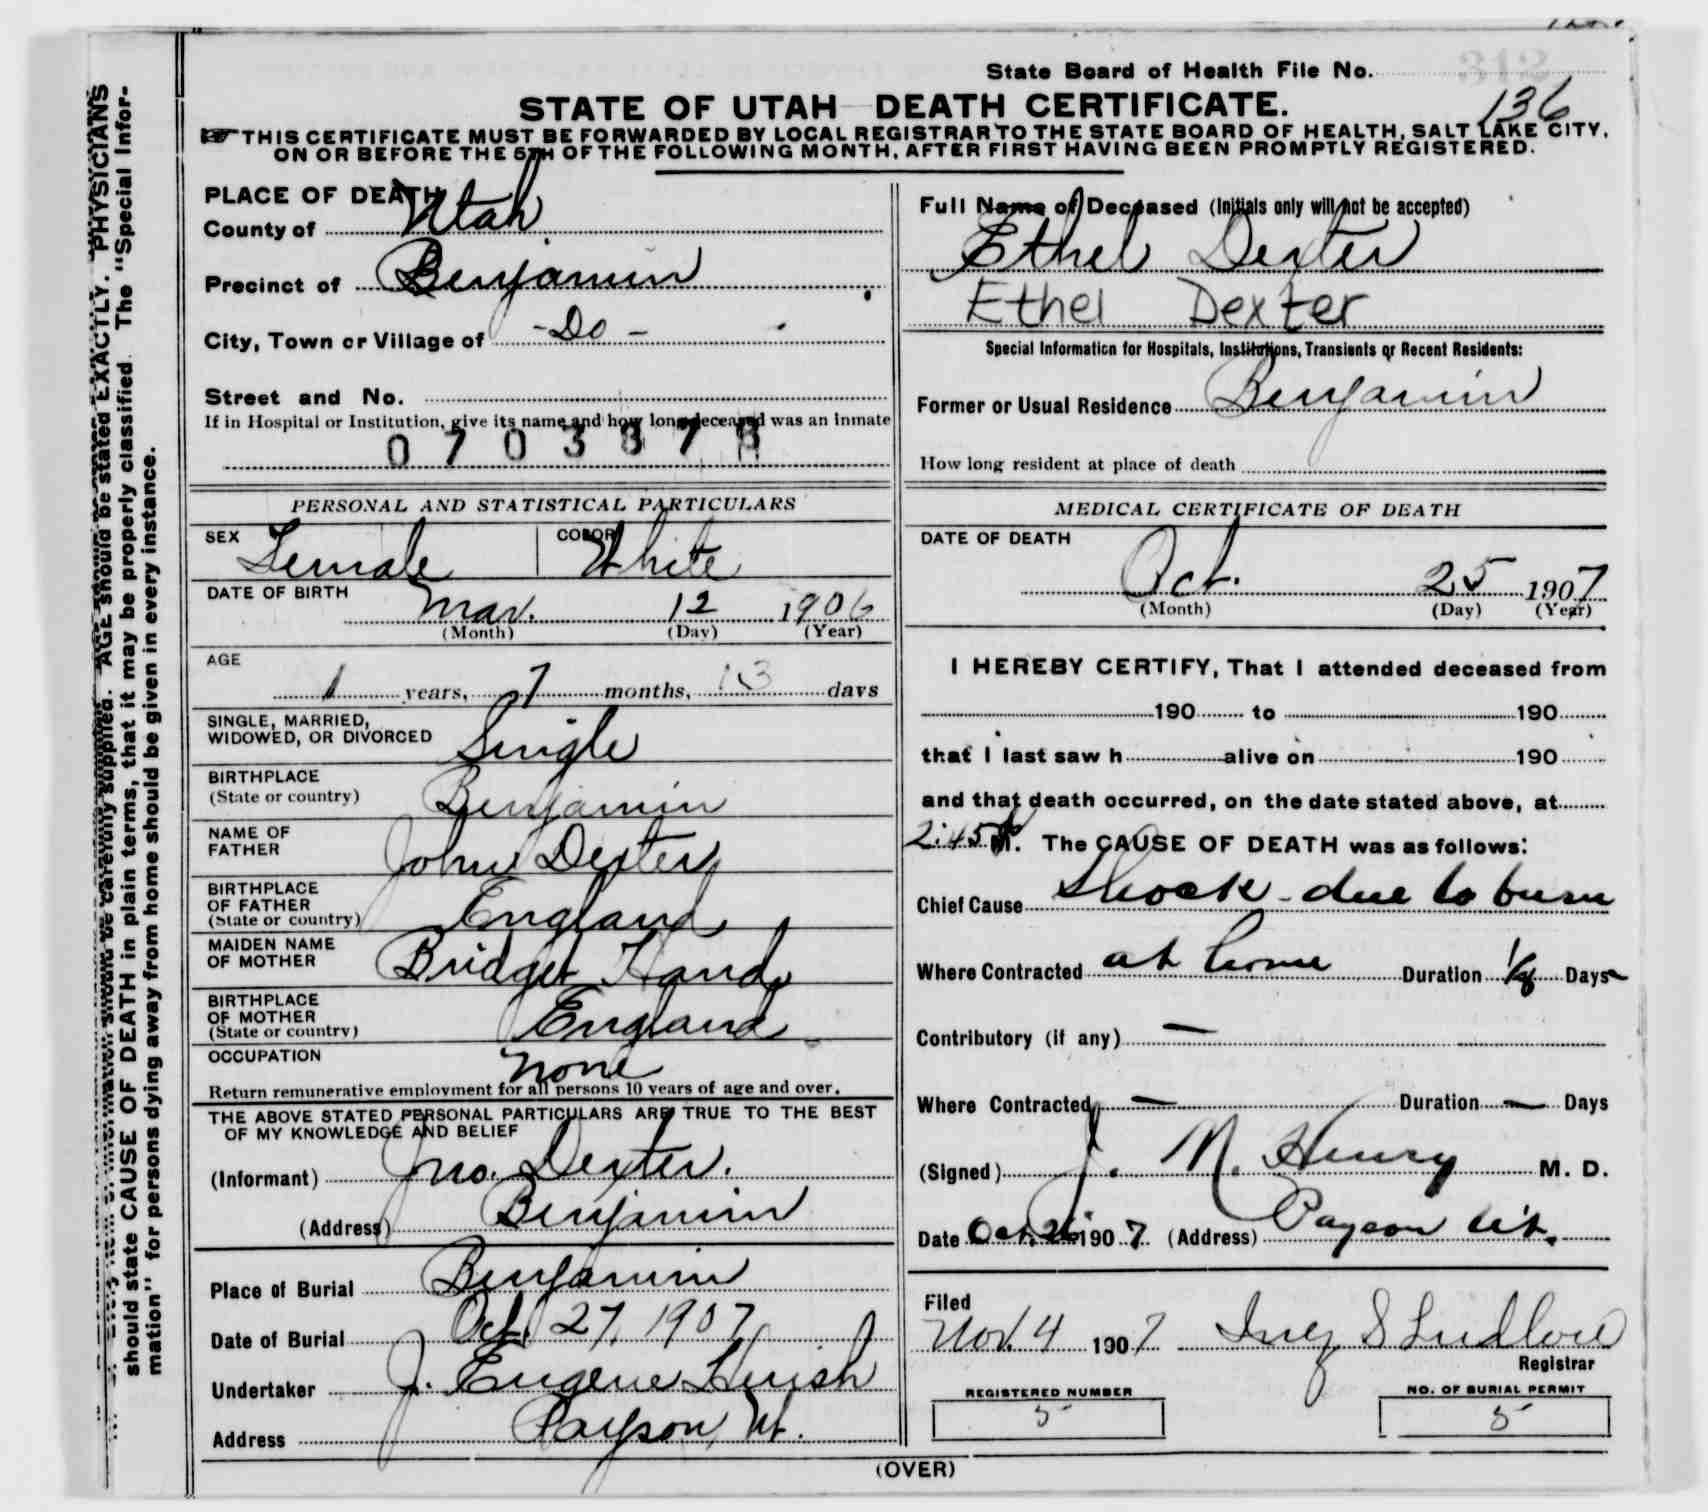 State Board of Health File No. 312
136
STATE OF UTAH DEATH CERTIFICATE.
THIS CERTIFICATE MUST BE FORWARDED BY LOCAL REGISTRAR TO THE STATE BOARD OF HEALTH, SALT LAKE CITY,
ON OR BEFORE THE 5TH OF THE FOLLOWING MONTH, AFTER FIRST HAVING BEEN PROMPTLY REGISTERED.
PLACE OF DEATH
County of Utah
Precinct of Benjamin
City, Town or Village of -Do-
Street and No.
If in Hospital or Institution, give its name and how long deceased was an inmate
0703378
PERSONAL AND STATISTICAL PARTICULARS
SEX Female COLOR White
DATE OF BIRTH Mar. 12 1906
(Month) (Day) (Year)
AGE
1 years, 7 months, 13 days
SINGLE, MARRIED,
WIDOWED, OR DIVORCED Single
BIRTHPLACE
(State or country) Benjamin
NAME OF
FATHER John Dexter
BIRTHPLACE
OF FATHER
(State or country) England
MAIDEN NAME
OF MOTHER Bridget Hand
BIRTHPLACE
OF MOTHER
(State or country) England
OCCUPATION None
Return remunerative employment for all persons 10 years of age and over.
THE ABOVE STATED PERSONAL PARTICULARS ARE TRUE TO THE BEST
OF MY KNOWLEDGE AND BELIEF
(Informant) Jno. Dexter.
(Address) Benjamin
Place of Burial Benjamin
Date of Burial Oct. 27, 1907
Undertaker J. Eugene
Address Payson, Ut.
Full Name of Deceased (Initials only will not be accepted)
Ethel Dexter
Ethel Dexter
Special Information for Hospitals, Institutions, Transients or Recent Residents:
Former or Usual Residence Benjamin
How long resident at place of death
MEDICAL CERTIFICATE OF DEATH
DATE OF DEATH
Oct. 25 1907
(Month) (Day) (Year)
I HEREBY CERTIFY, That I attended deceased from
190 to 190
that I last saw h alive on 190
and that death occurred, on the date stated above, at
2:45 P M. The CAUSE OF DEATH was as follows:
Chief Cause Shock - due to burn
Where Contracted at home Duration 1/8 Days
Contributory (if any) —
Where Contracted — Duration — Days
(Signed) J. N. Henry M. D.
Date Oct. 26 1907 (Address) Payson Ut.
Filed
Nov. 4 1907 Inez S Ludlow
Registrar
REGISTERED NUMBER NO. OF BURIAL PERMIT
5 5
(OVER)
AGE should be stated EXACTLY. PHYSICIANS
should state CAUSE OF DEATH in plain terms, that it may be properly classified. The "Special Infor-
mation" for persons dying away from home should be given in every instance.